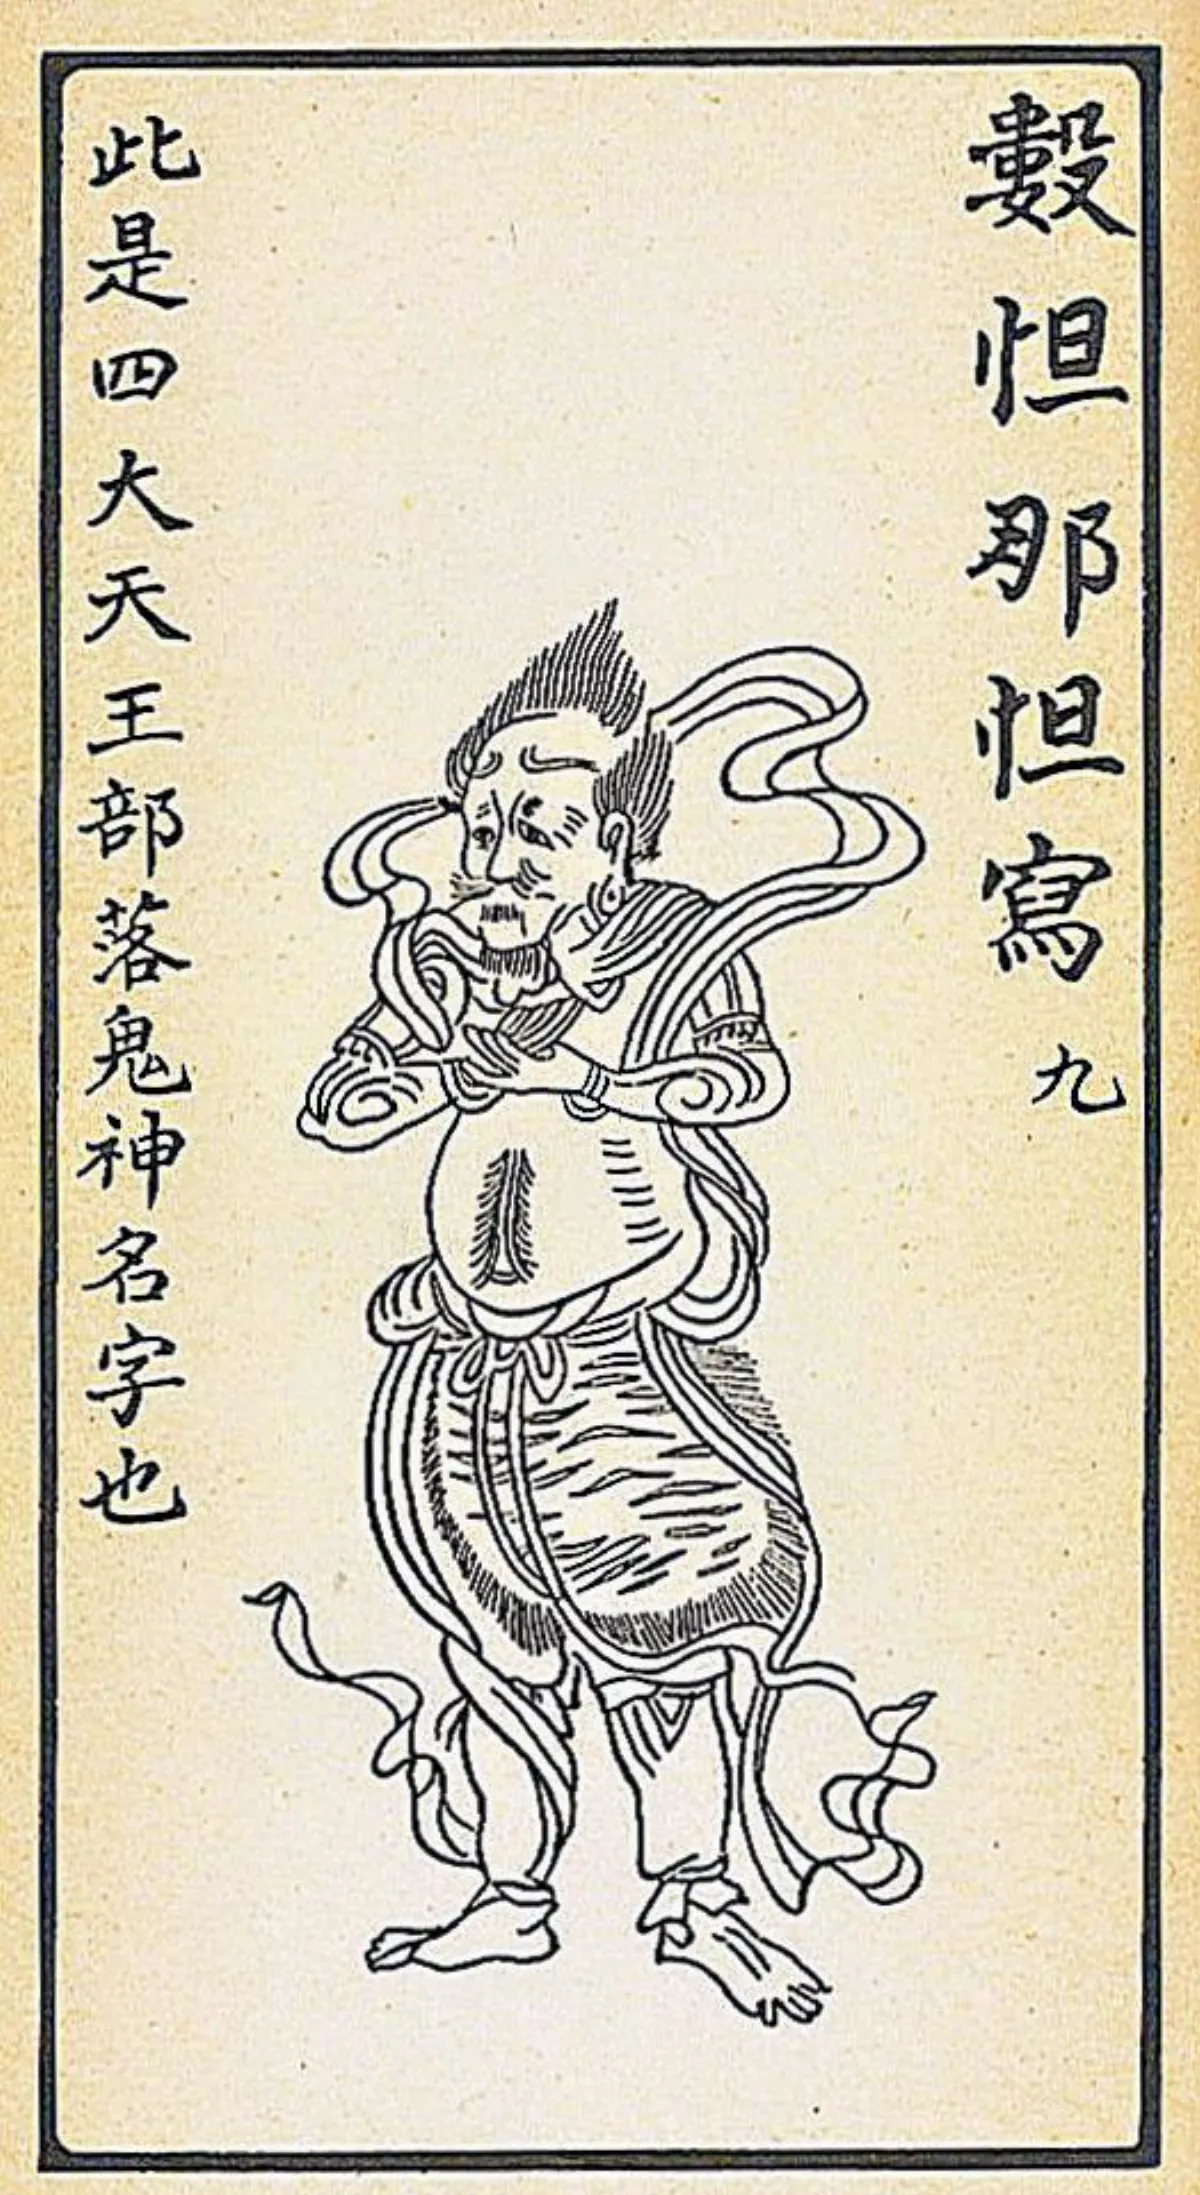 數怛那怛寫 九
此是四大天王部落鬼神名字也